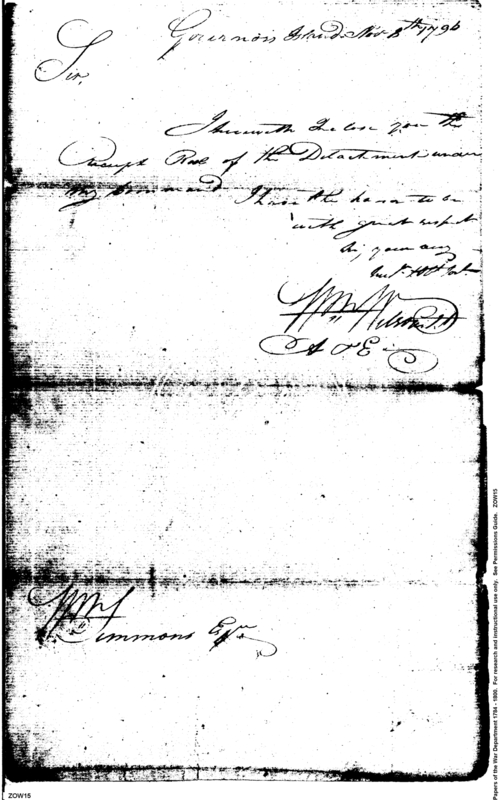 Governors Island Nov 8th 1796
Sir,
I herewith Inclose you the
receipt Roll of the Detachment under
my Command I have the honor to be
with great respect
Sir, your
Wm Wilson Lt
A & E
Wm Simmons Esqr
ZOW15
Papers of the War Department 1784 - 1800. For research and instructional use only. See Permissions Guide. ZOW15